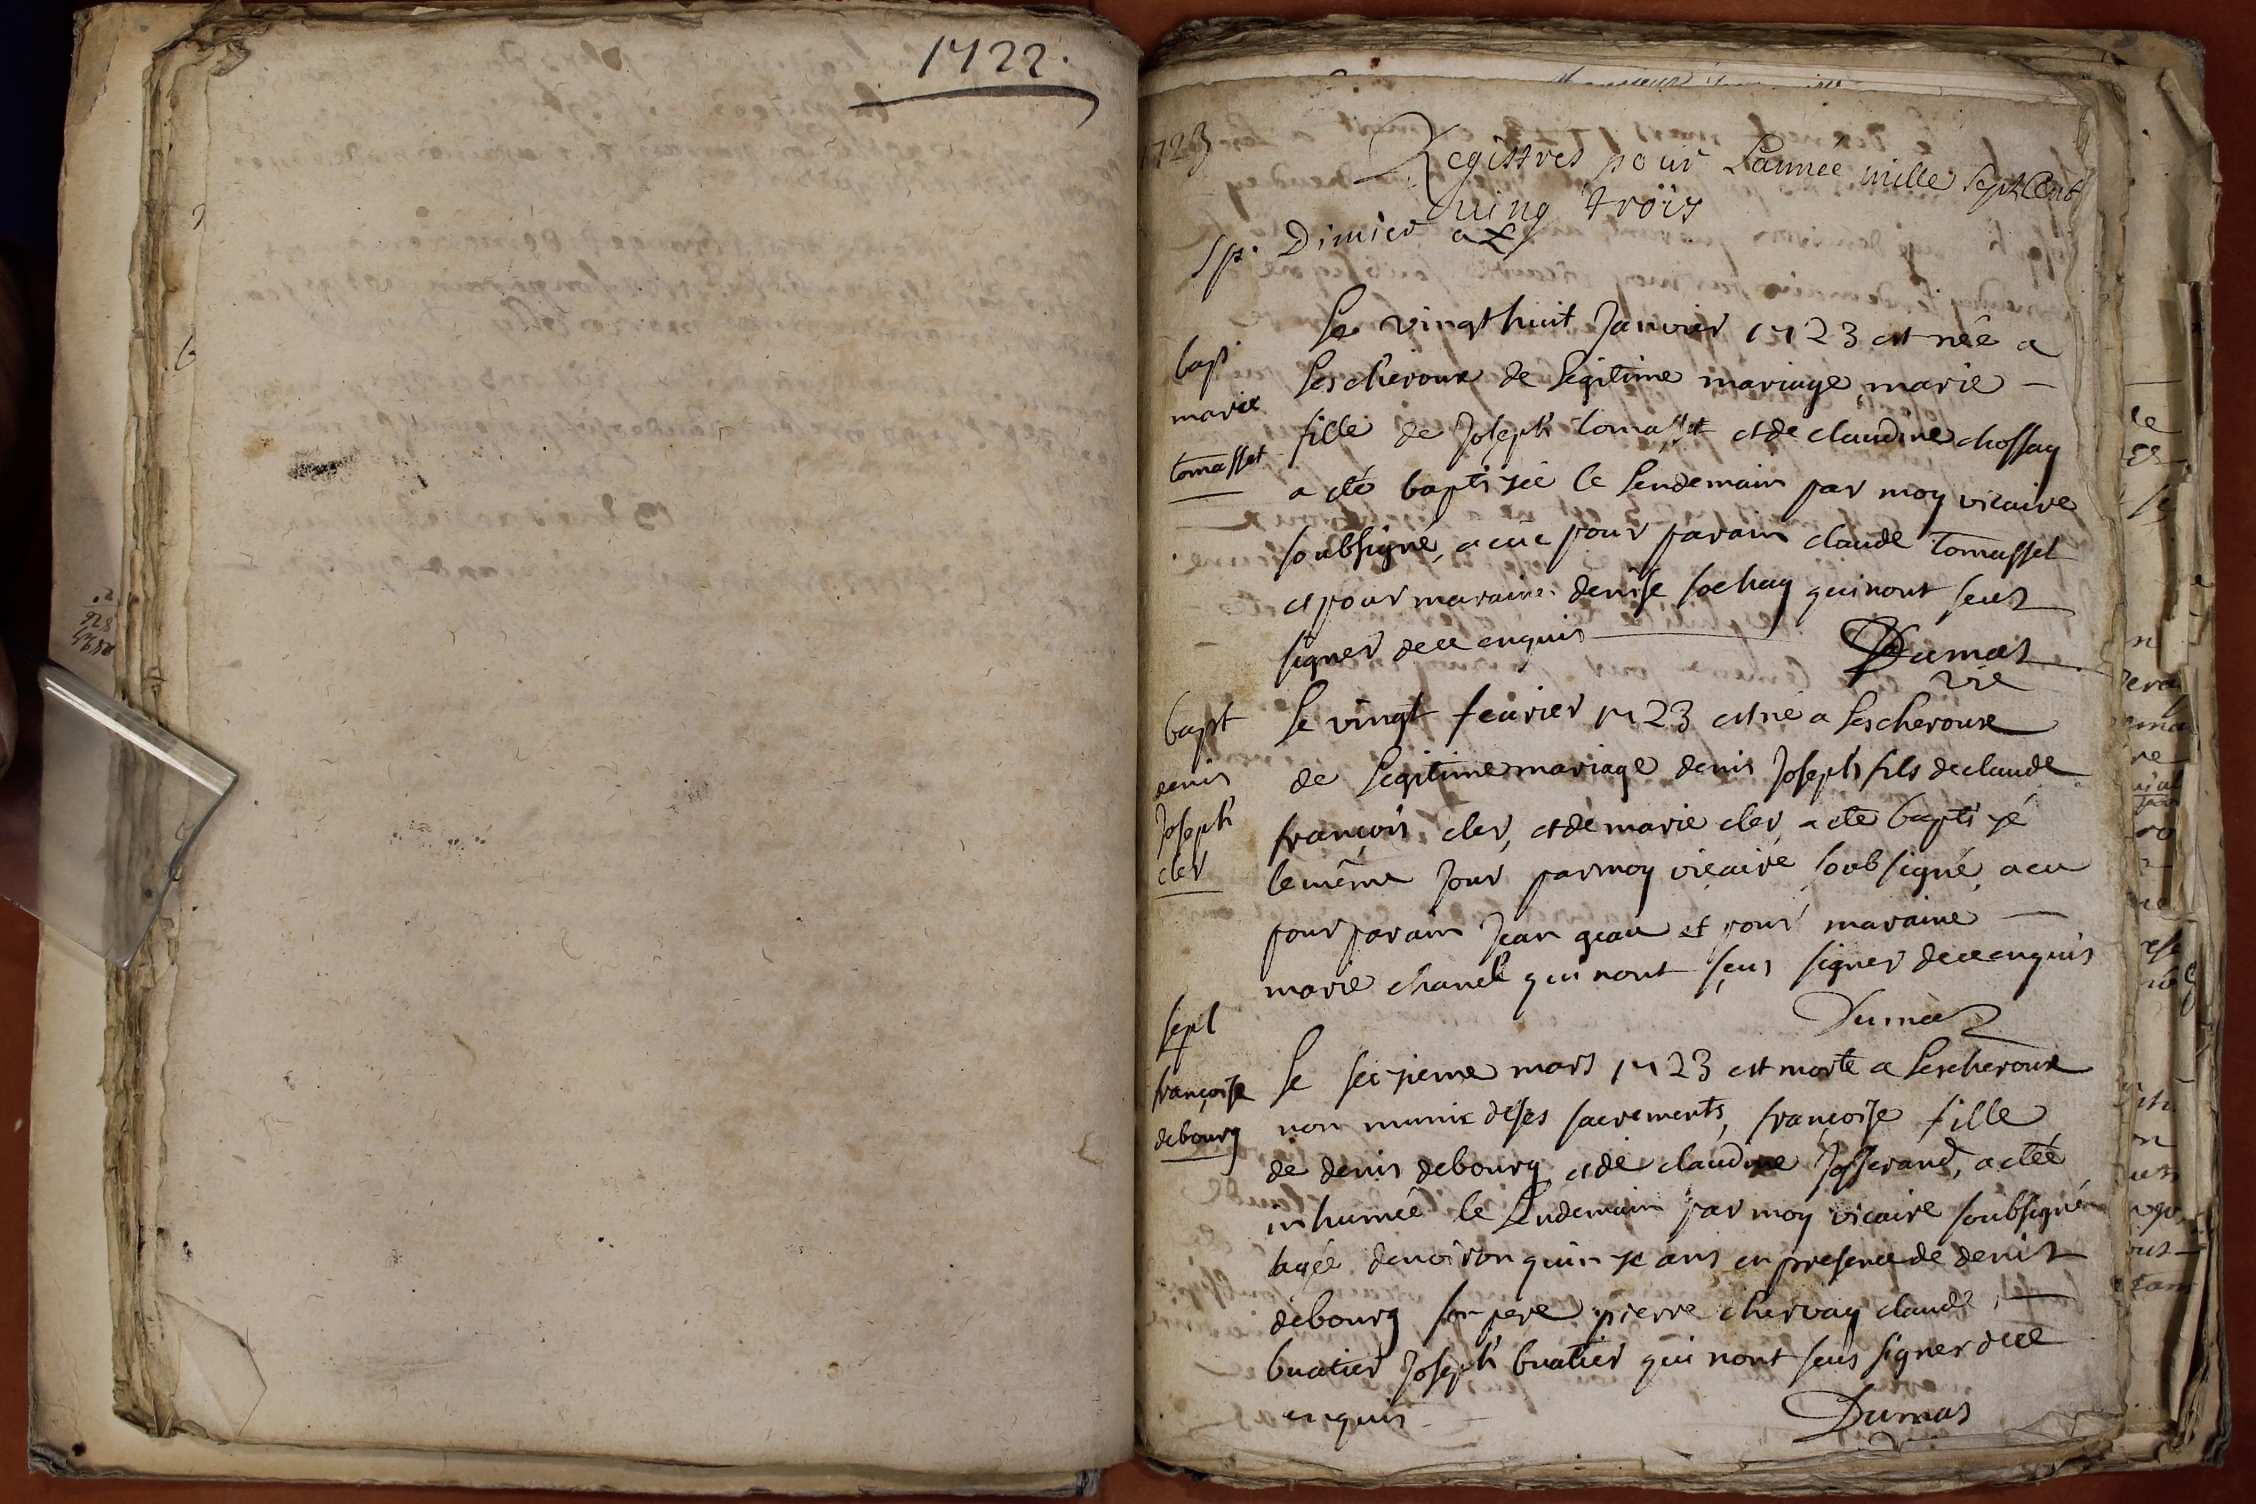 1722.
1723
Registres pour Lannee mille Sept Cent
ving troïs
Sp. Dimier
bap
marie
tomasset
Le vingt huit Janvier 1723 est neé a
Lescheroux de Legitime mariage, marie
fille de Joseph tomasset et de claudine chossay
a eté baptizée le Lendemain par moy vicaire
soubsigné, a eue pour parain claude tomasset
et pour maraine denise sochay qui nont seus
signer de ce enquis
Dumas
vre
bapt
denis
Joseph
cler
Le vingt feúrier 1723 est né a Lescheroux
de Legitime mariage denis Joseph fils de claude
françois cler, et de marie cler, a eté baptizé
le même Jour par moy vicaire soubsigné, a eu
pour parain Jean et pour maraine
marie chanel qui nont seus signer de ce enquis
Dumas
sepl
françoise
debourg
Le seizieme mars 1723 est morte a Lescheroux
non munie de ses sacrements, françoise fille
de denis debourg et de claudine Josserand, a etée
inhumeé le Lendemain par moy vicaire soubsigné
agée denviron quinze ans en presence de denis
debourg son pere pierre chervay claude
buatier Joseph buatier qui nont seus signer de ce
enquis
Dumas